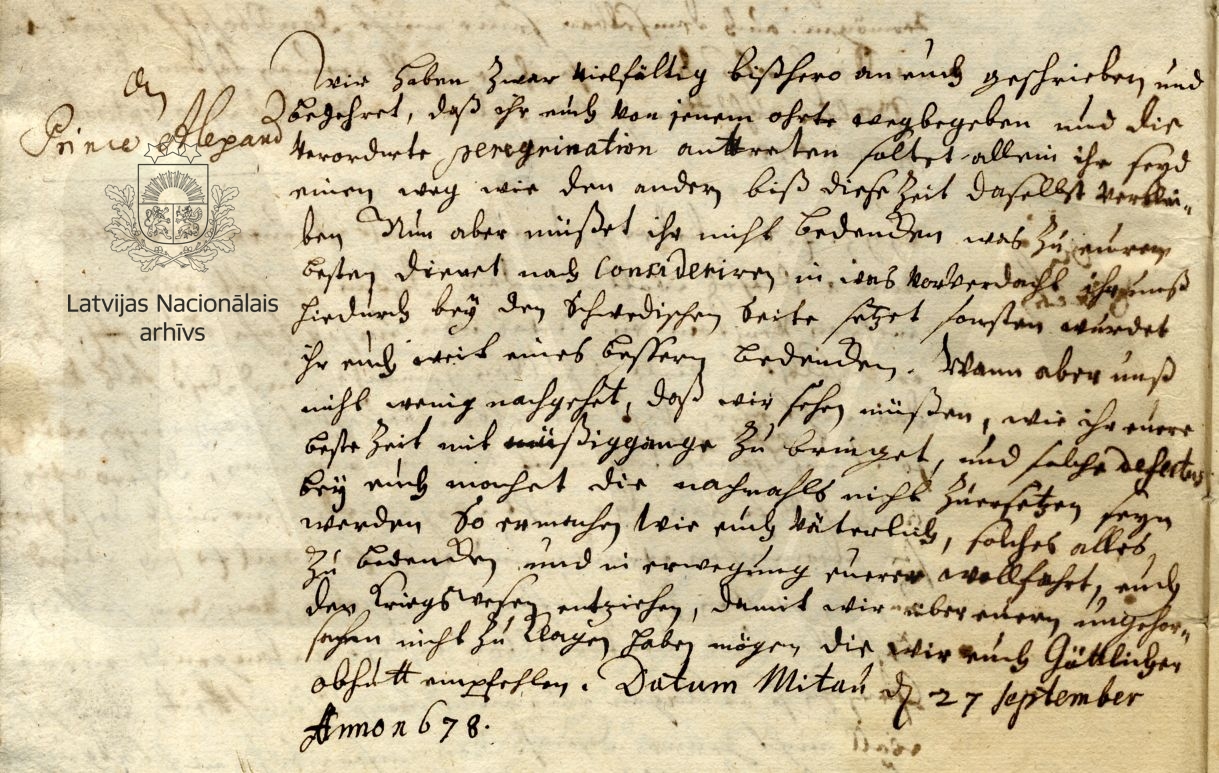 An
Prince Alexand
Wir haben zwar vielfältig bißhero an euch geschrieben und
begehret, daß ihr euch von jenem ohrte wegbegeben und die
verordnete peregrination antreten soltet allein ihr seyd
einen weg wie den andern biß diese Zeit daselbst verblei-
ben Nun aber müßet ihr nicht bedencken was zu eurem
besten dienet noch consideriren in was vorverdacht ihr unß
hiedurch bey den Schwedischen Seite setzet sonsten würdet
ihr euch weit eines bessern bedencken. Wann aber unß
nicht wenig nachgehet, daß wir sehen müßen, wie ihr euere
beste Zeit mit müßiggange zu bringet, und solche defectus
bey euch machet die nachmahls nicht zuersetzen seyn
werden So ermahnen wir euch Väterlich, solches alles
zu bedencken und in erwegung euerer wollfahrt, euch
des Kriegswesen entziehen, damit wir über euern ungehor-
sahm nicht zu klagen haben mögen die wir euch Göttlicher
obhutt empfehlen. Datum Mitau d 27 September
Anno 1678.
Latvijas Nacionālais
arhīvs